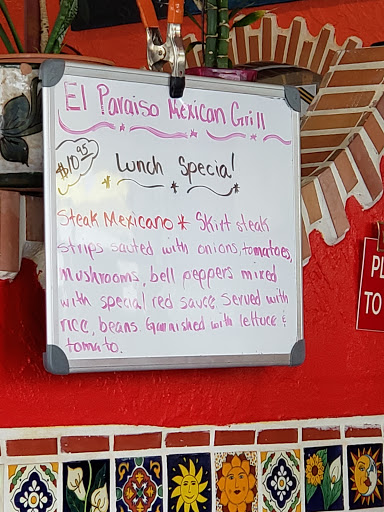 El Paraiso Mexican Grill
$10.95
Lunch Special
Steak Mexicano * Skirt steak
strips sauted with onions, tomatoes,
mushrooms, bell peppers mixed
with special red sauce served with
rice, beans Garnished with lettuce &
tomato.
PL
TO